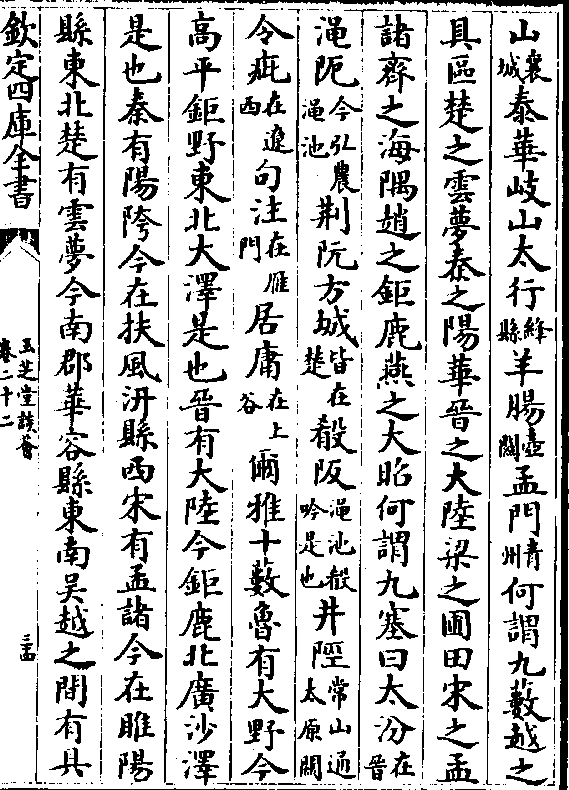 山襄城泰華岐山太行絳縣羊腸壺關孟門青州何謂九藪越之
具區楚之雲夢秦之陽華晉之大陸梁之圃田宋之孟
諸齊之海隅趙之鉅鹿燕之大昭何謂九塞曰太汾在晉
澠阨今弘農澠池荆阮方城皆在楚殽阪澠池殽吟是也井陘常山通太原關
令疵在遼西句注在雁門居庸在上谷爾雅十藪魯有大野今
高平鉅野東北大澤是也晉有大陸今鉅鹿北廣沙澤
是也秦有陽陓今在扶風汧縣西宋有孟諸今在睢陽
縣東北楚有雲夢今南郡華容縣東南吳越之間有具
欽定四庫全書
玉芝堂談薈
卷二十二